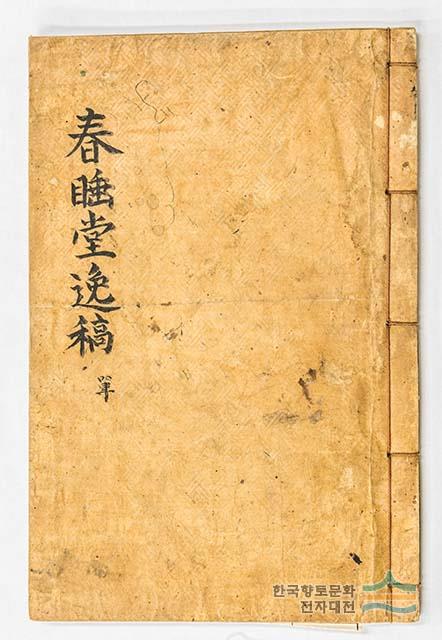 春睡堂逸稿
單
한국향토문화
전자대전